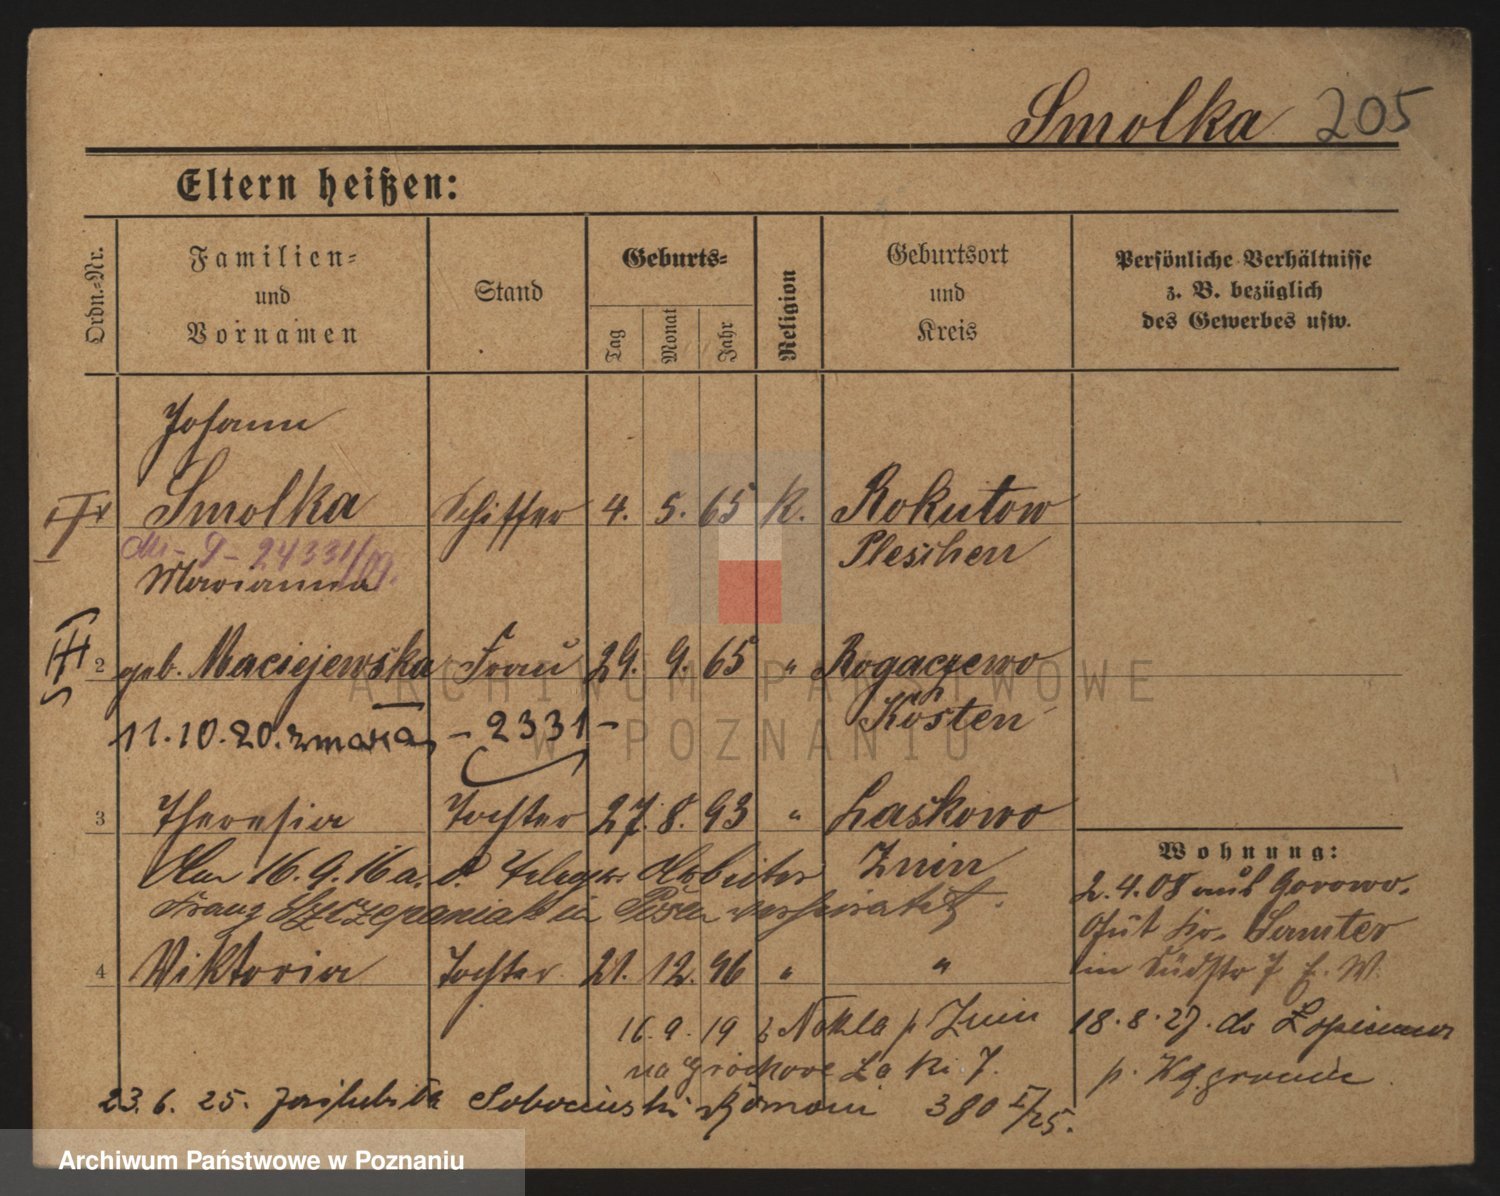 Smolka 205
Eltern heißen:
Ordn.-Nr.
Familien- und Vornamen
Stand
Geburts-
Tag
Monat
Jahr
Religion
Geburtsort und Kreis
Persönliche Verhältnisse z. B. bezüglich des Gewerbes usw.
Johann
Smolka Schiffer 4. 5. 65 K. Rokutow
24331/09. Pleschen
Marianna
2 geb. Maciejewska Frau 29. 9. 65 " Rogaczewo
Kosten
11.10.20. zmarła - 2331 -
3 Theresia Tochter 27. 8. 93 " Laskowo
Znin
Am 16.9.16 a. d. Arbeiter
Franz Szczepaniak in Posen verheiratet.
4 Viktoria Tochter 21. 12. 96 " "
Wohnung:
2.4.08 aus Gorowo.
Gut Kr. Samter
in Südstr 7 b. W.
16.9.19 z Nakla p Znin
na Grochowe Łąki 7.
18.8.27. do
p.
23.6.25. zaślubiła Sobocinski Roman 380 I/25.
ARCHIWUM PAŃSTWOWE
W POZNANIU
Archiwum Państwowe w Poznaniu